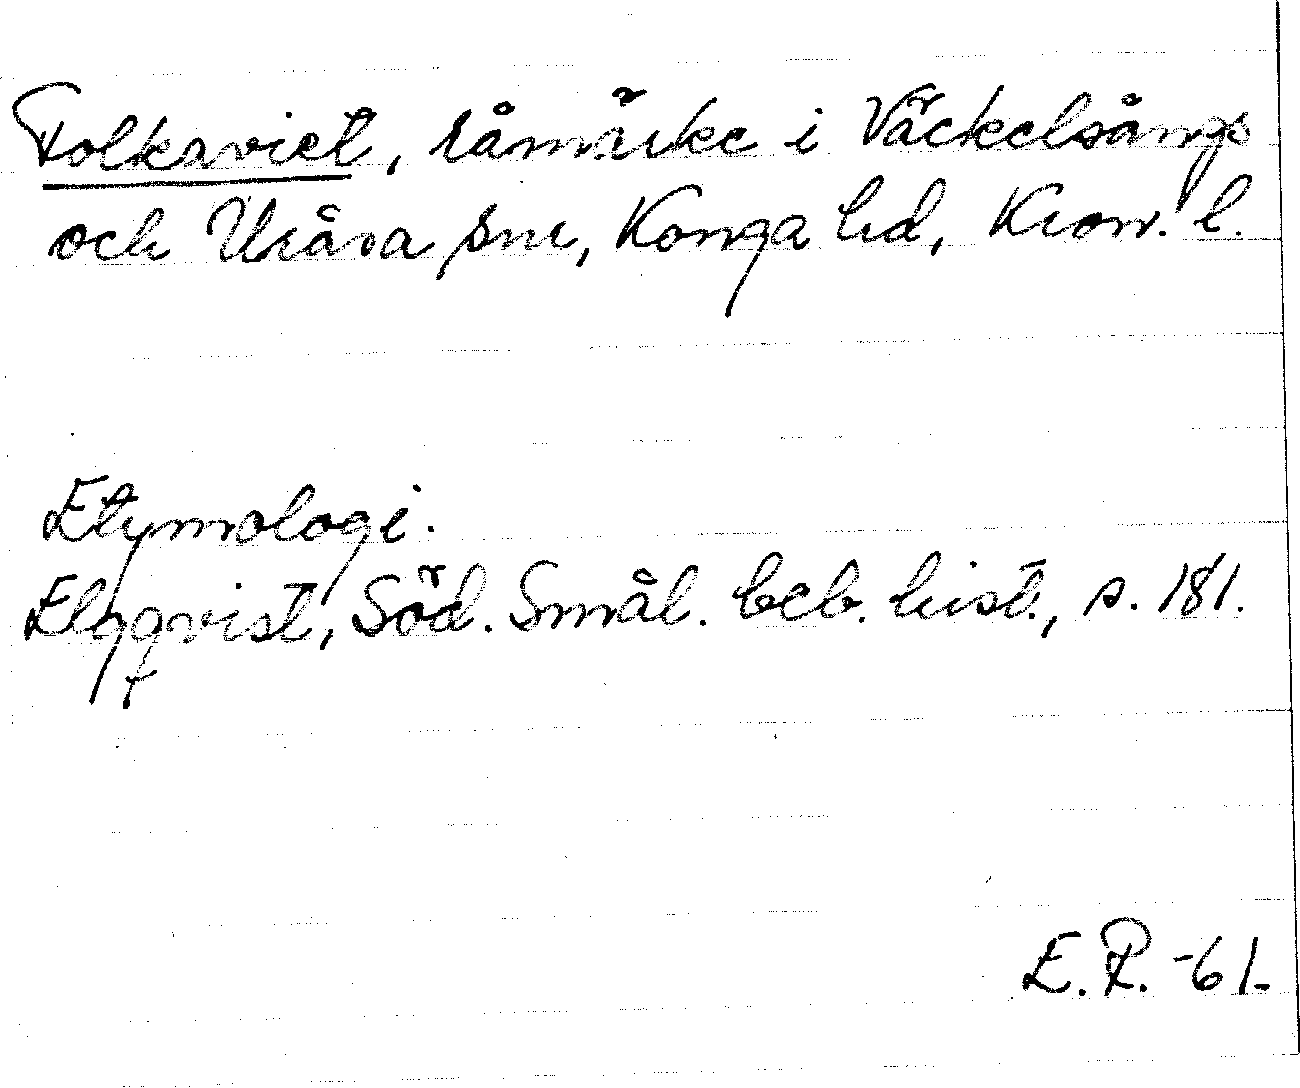 Folksviet, råmärke i Väckelsångs
och Uråsa snr, Konga hd, Kron. l.
Etymologi.
Elgqvist, Söd. Smål. beb. hist., s. 181.
E. P. -61.